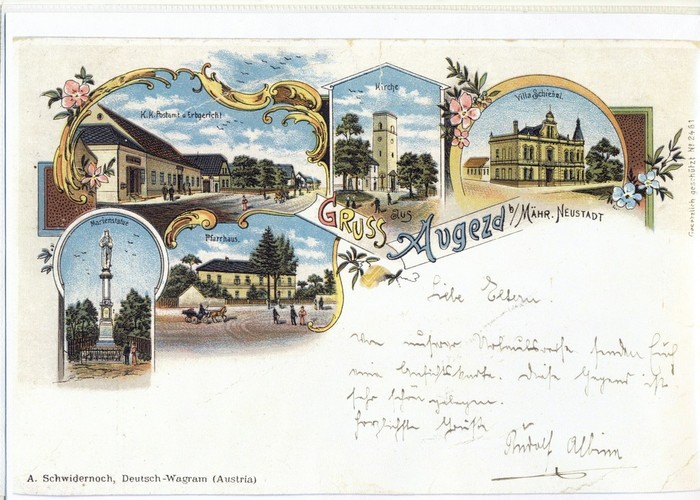 K. K. Postamt u Erbgericht
Kirche
Villa Schiebel.
Gesetzlich geschützt Nº 2461
Marienstatue
Pfarrhaus.
GRUSS aus
Augezd b/ MÄHR. NEUSTADT
Liebe Eltern!
Von unserer Urlaubsreise senden Euch
eine Ansichtskarte. Diese Gegend ist
sehr schön gelegen.
herzlichste Grüße
Rudolf Albina
A. Schwidernoch, Deutsch-Wagram (Austria)